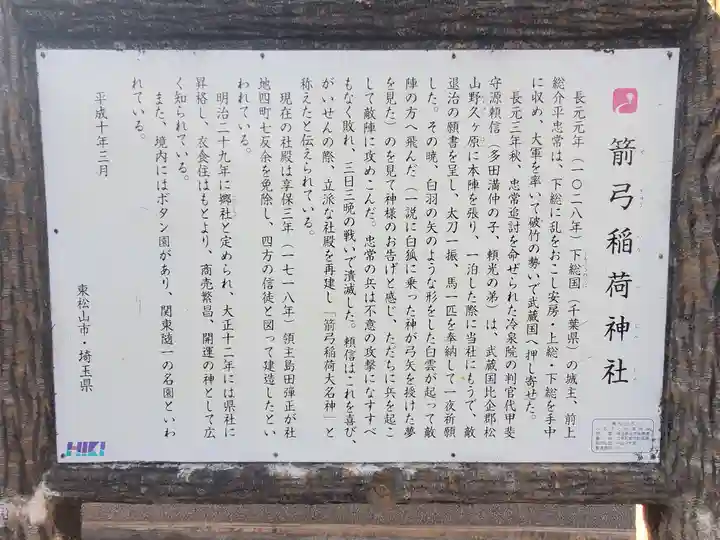 箭弓稲荷神社
長元元年(一〇二八年)下総国(千葉県)の城主、前上
総介平忠常は、下総に乱をおこし安房・上総・下総を手中
に収め、大軍を率いて破竹の勢いで武蔵国へ押し寄せた。
長元三年秋、忠常追討を命ぜられた冷泉院の判官代甲斐
守源頼信(多田満仲の子、頼光の弟)は、武蔵国比企郡松
山野久ヶ原に本陣を張り、一泊した際に当社にもうで、敵
退治の願書を呈し、太刀一振、馬一匹を奉納して一夜祈願
した。その暁、白羽の矢のような形をした白雲が起って敵
陣の方へ飛んだ(一説に白狐に乗った神が弓矢を授けた夢
を見た)のを見て神様のお告げと感じ、ただちに兵を起こ
して敵陣に攻めこんだ。忠常の兵は不意の攻撃になすすべ
もなく敗れ、三日三晩の戦いで潰滅した。頼信はこれを喜び、
がいせんの際、立派な社殿を再建し「箭弓稲荷大名神」と
称えたと伝えられている。
現在の社殿は享保三年(一七一八年)領主島田弾正が社
地四町七反余を免除し、四方の信徒と図って建造したとい
われている。
明治二十九年に郷社と定められ、大正十二年には県社に
昇格し、衣食住はもとより、商売繁昌、開運の神として広
く知られている。
また、境内にはボタン園があり、関東随一の名園といわ
れている。
平成十年三月
東松山市・埼玉県
HIKI